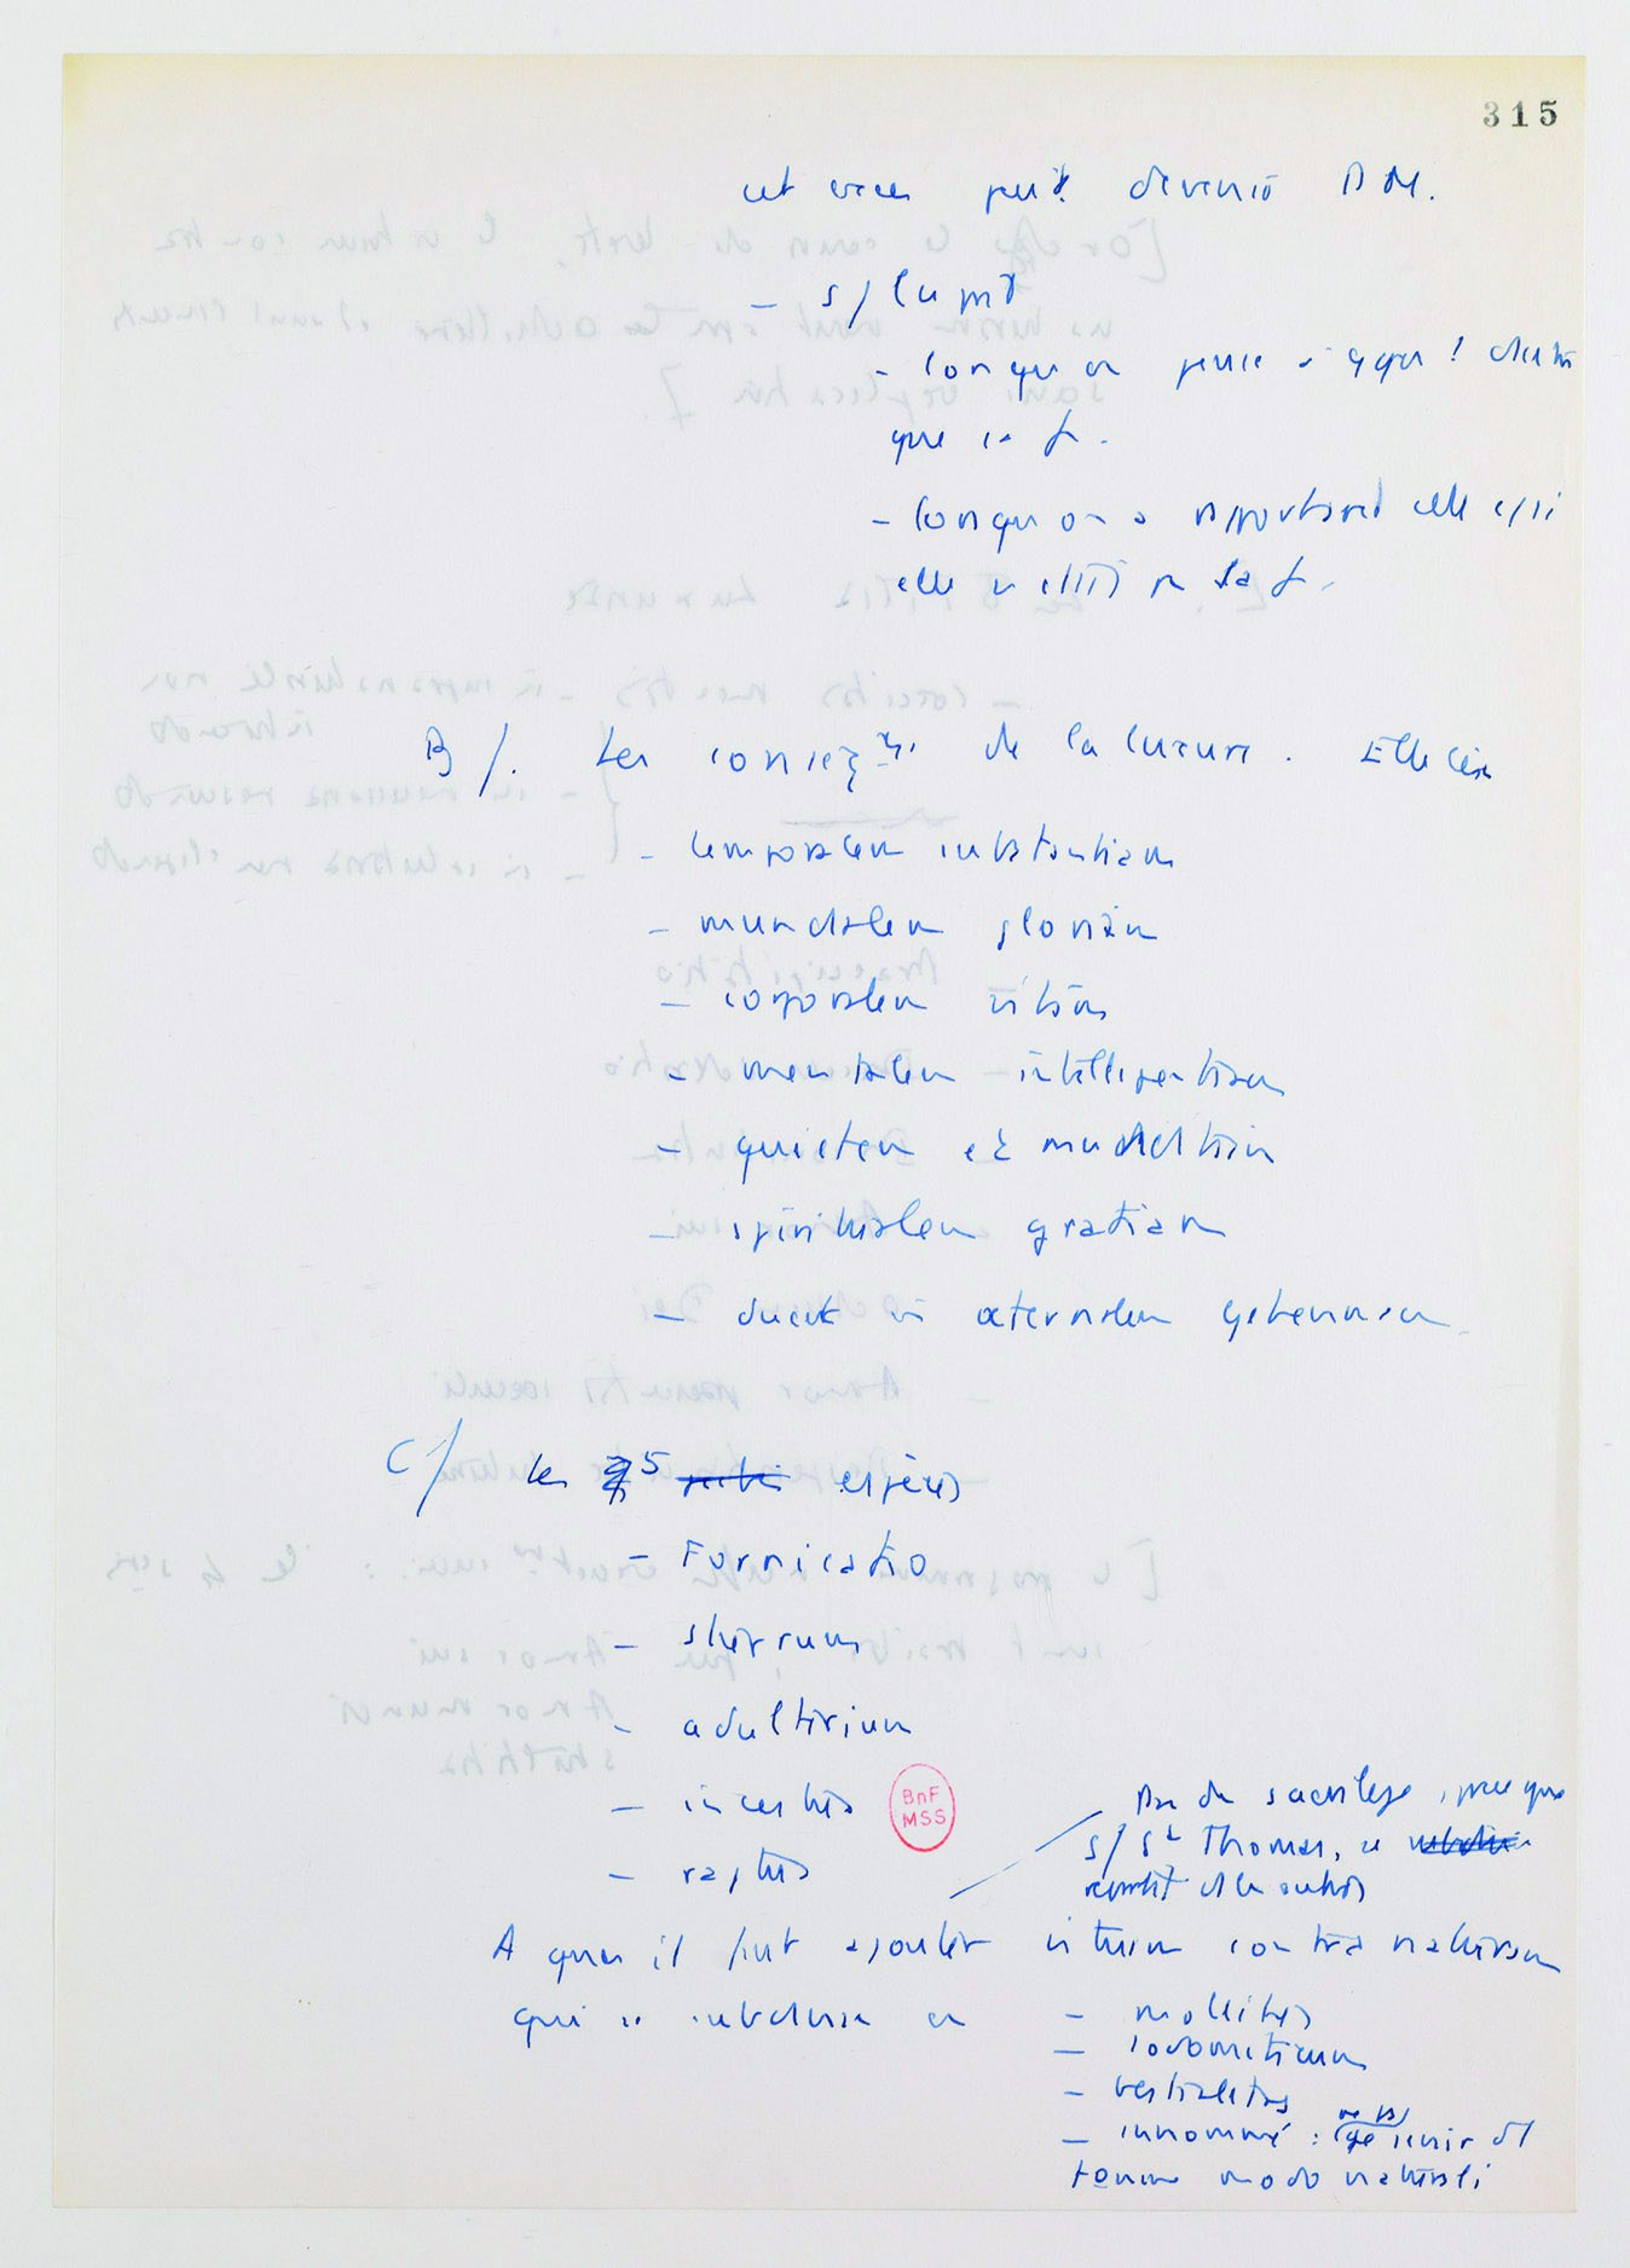 315
cet peut devenir P M.
- s/ l'esprit
- lorsqu'on pense à qqn d'autre
que sa f.
- lorsqu'on a
elle n'était pas sa f.
B/. Les conseq^ces de la luxure. Elle lèse
- temporalem substantiam
- mundalem gloriam
- corporalem vitam
- mentalem - intelligentiam
- quietem et munditiam
- spiritualem gratiam
- ducit in aeternalem gehennam.
C/ les 5 espèces
- Fornicatio
- stuprum
- adulterium
- incestus
BnF
MSS
- raptus
Pas de sacrilège, parce que
s/ S^t Thomas, il
remplit les autres
A quoi il faut ajouter vitium contra naturam
qui se subdivise en
- mollities
- sodomiticum
- bestialitas
- innommé : ne pas s'unir
homme modo naturali